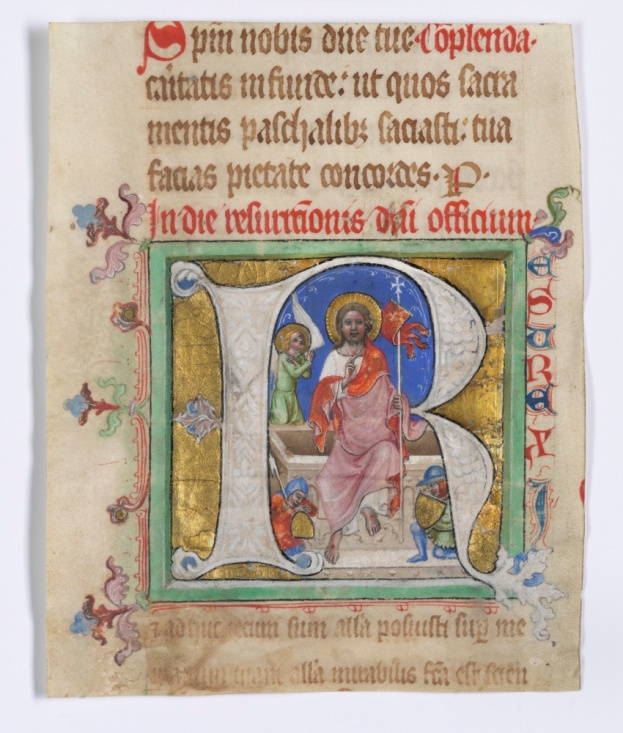 Spm nobis dne tue. Coplenda.
caritatis infunde: ut quos sacra
mentis paschalibz saciasti: tua
facias pietate concordes. P.
In die resurrctionis dni officium
R
ESUREXI
adhuc tecum sum alla posuisti sup me
manum tuam alla mirabilis fca est scien